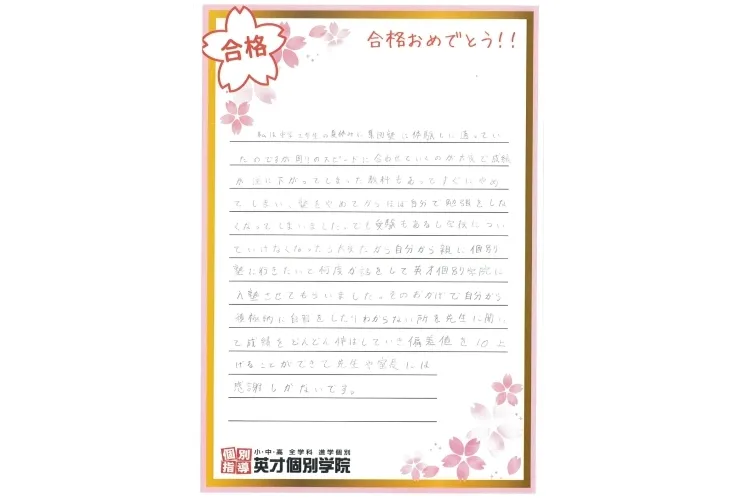 合格
合格おめでとう!!
私は中学二年生の夏休みに集団塾に体験しに通ってい
たのですが周りのスピードに合わせていくのが大変で成績
が逆に下がってしまった教科もあってすぐにやめ
てしまい、塾をやめてからは自分で勉強をしな
くなってしまいました。でも受験もあるし学校につい
ていけなくなったら大変だから自分から親に個別
塾に行きたいと何度か話をして英才個別学院に
入塾させてもらいました。そのおかげで自分から
積極的に自習をしたりわからない所を先生に聞い
て成績をどんどん伸ばしていき偏差値を10上
げることができて先生や室長には
感謝しかないです。
個別指導
小・中・高 全学科 進学個別
英才個別学院